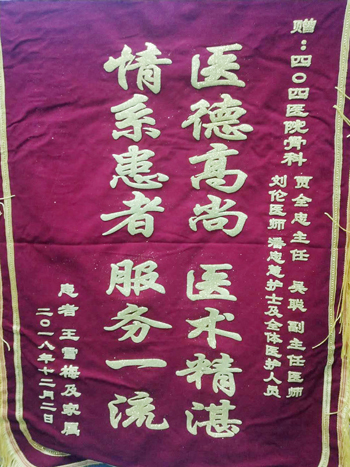 赠：四〇四医院骨科 贾全忠主任 吴联副主任医师
刘伦医师 潘忠慧护士及全体医护人员
医德高尚 医术精湛
情系患者 服务一流
患者 王雪梅及家属
二〇一八年十二月二日